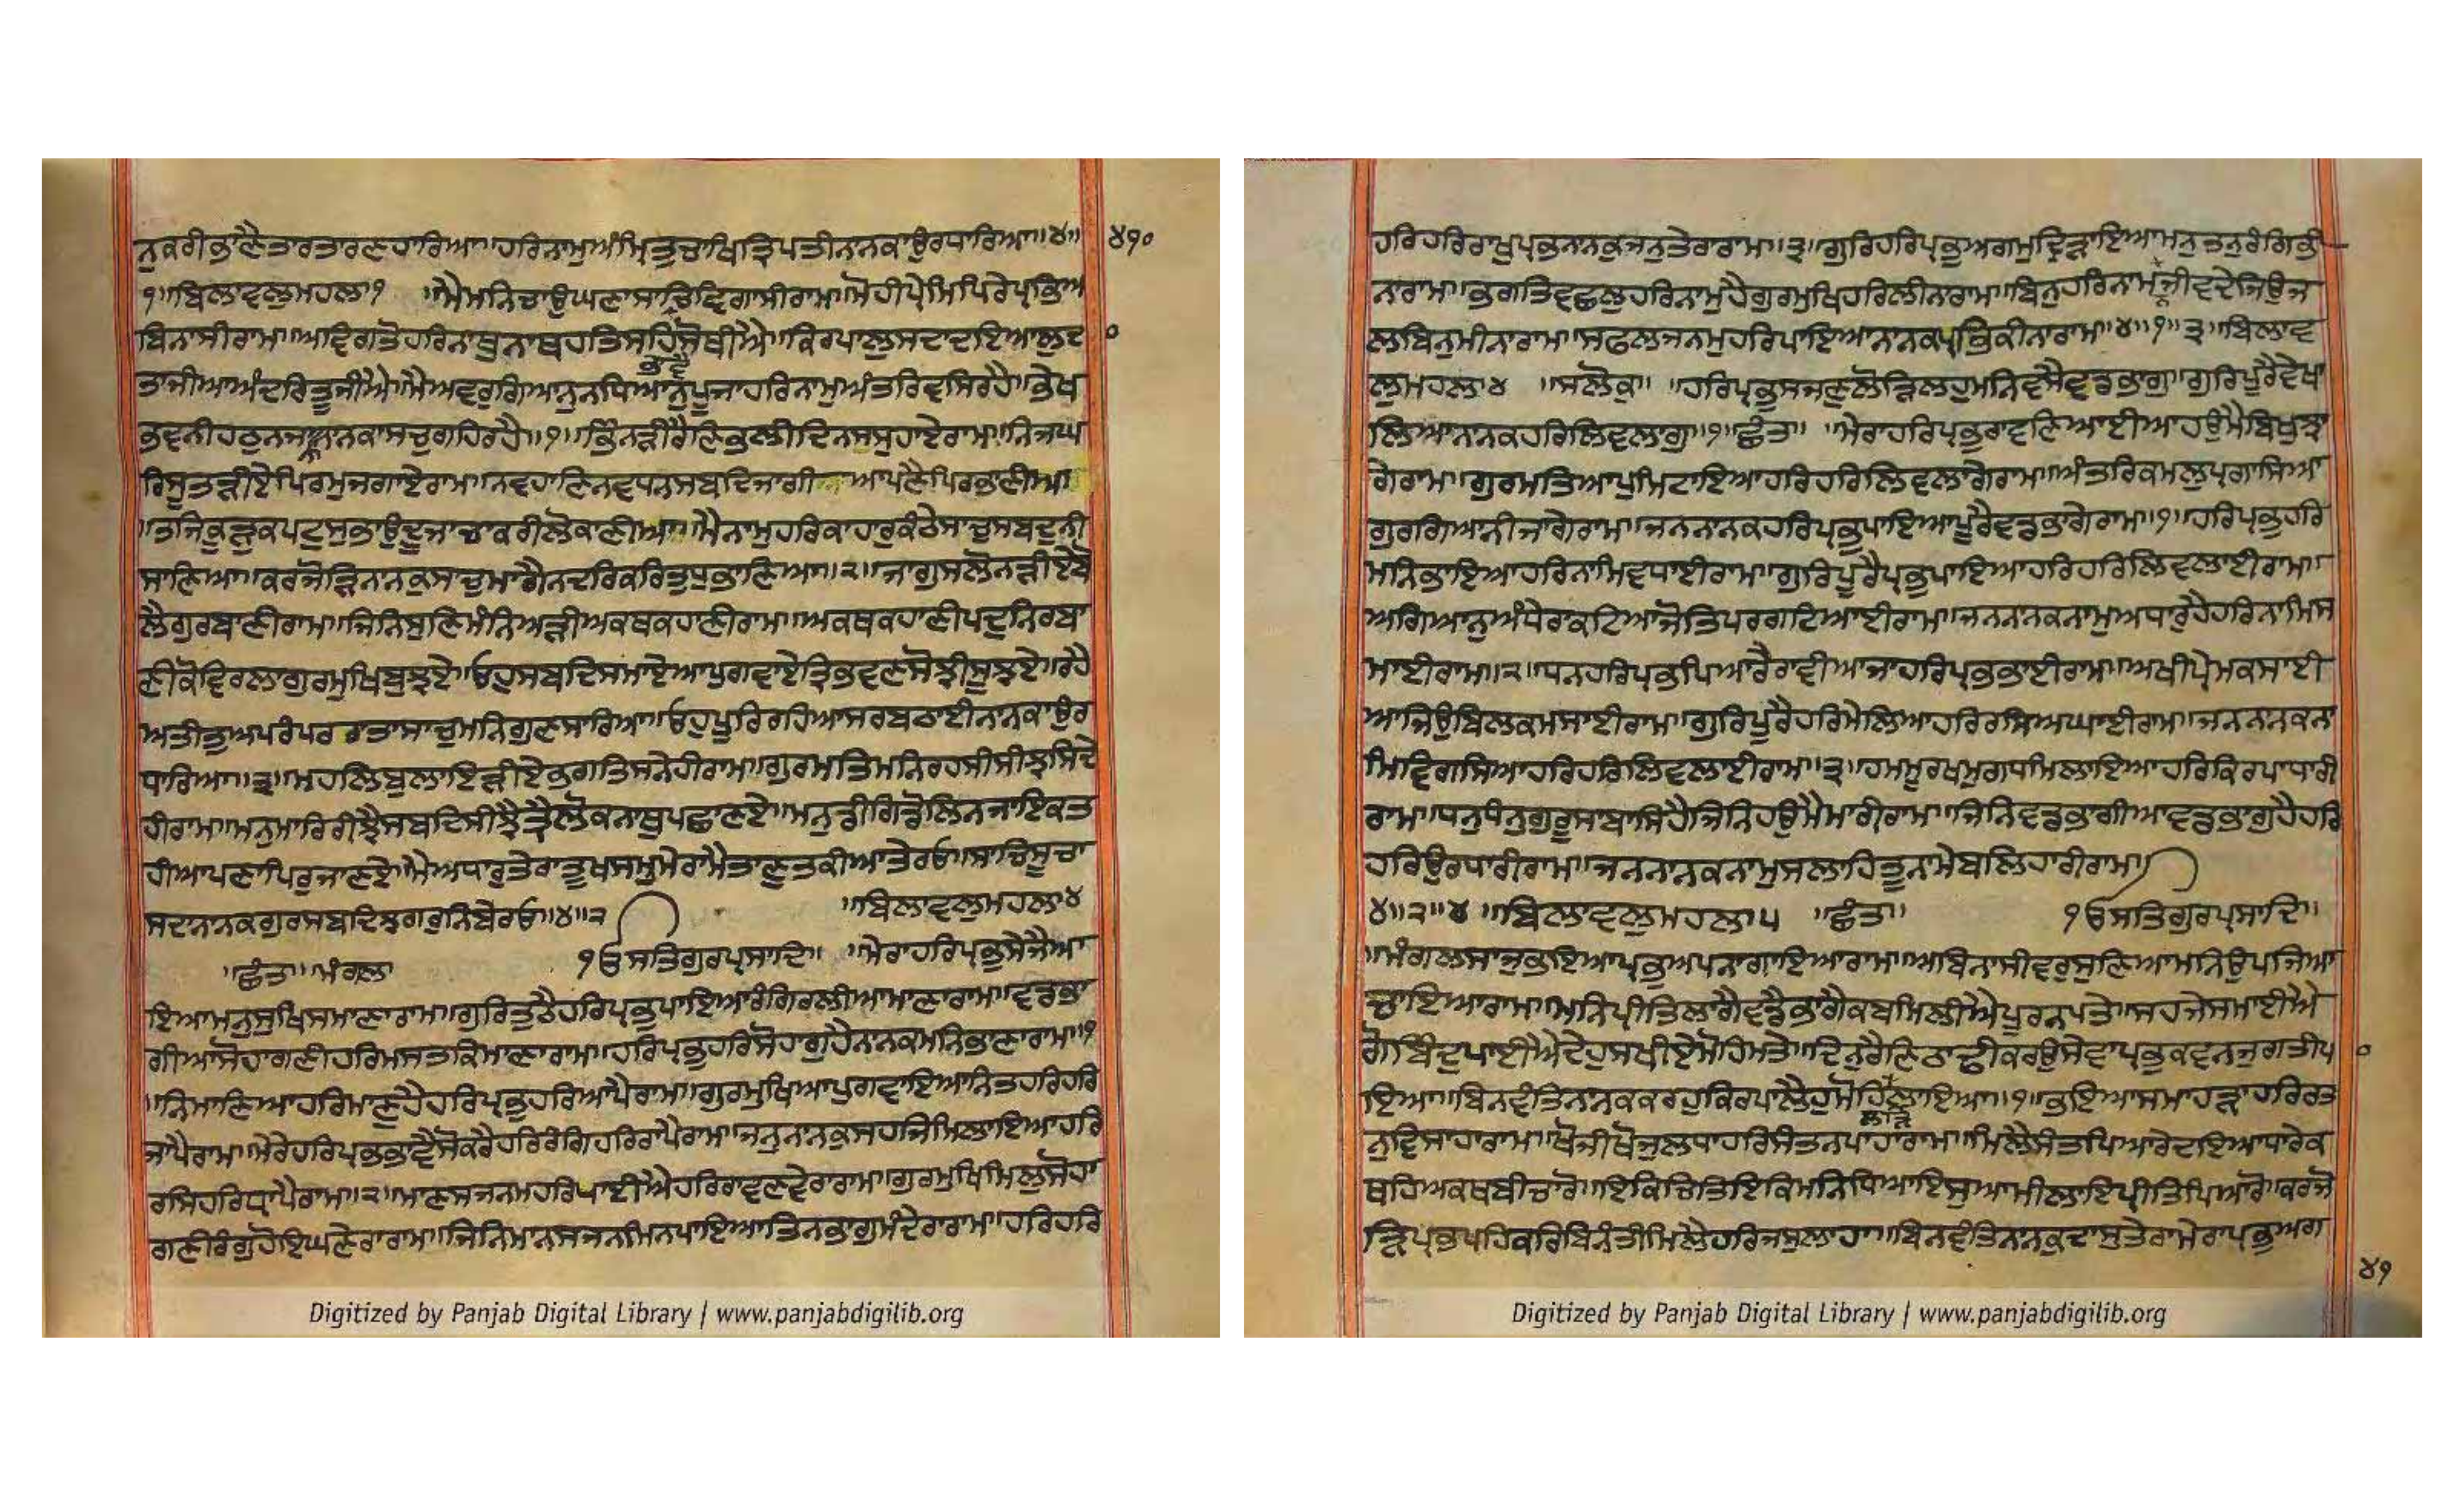 ਨੁਕਰੀਭਾਣੈਤਾਰਤਾਰਣਹਾਰਿਆ॥ਹਰਿਨਾਮੁਅੰਮ੍ਰਿਤੁਚਾਖਿਤ੍ਰਿਪਤੀਨਾਨਕਾਉਰਧਾਰਿਆ॥੪॥ ੪੧੦
੧॥ਬਿਲਾਵਲੁਮਹਲਾ੧ ॥ਮੈਮਨਿਚਾਉਘਣਾਸਾਚਿਵਿਗਾਸੀਰਾਮ॥ਮੋਹੀਪ੍ਰੇਮਿਪਿਰੇਪ੍ਰਭਿਅ
ਬਿਨਾਸੀਰਾਮ॥ਅਵਿਗਤੋਹਰਿਨਾਥੁਨਾਥਹਤਿਸਹਿਸੋਥੀਐ॥ਕਿਰਪਾਲੁਸਦਾਦਇਆਲੁਦ
ਭਾਵੈ
ਤਾਜੀਆਅੰਦਰਿਤੂਜੀਐ॥ਮੈਅਵਰੁਗਿਆਨੁਨਧਿਆਨੁਪੂਜਾਹਰਿਨਾਮੁਅੰਤਰਿਵਸਿਰਹੈ॥ਭੇਖ
ਭਵਨੀਹਠੁਨਜਾਨਾਨਕਾਸਚੁਗਹਿਰਹੈ॥੧॥ਭਿੰਨੜੀਰੈਣਿਭਲੀਦਿਨਸਸੁਹਾਏਰਾਮ॥ਨਿਜਘ
ਰਿਸੂਤੜੀਏਪਿਰਮੁਜਗਾਏਰਾਮ॥ਨਵਹਾਣਿਨਵਧਨਸਬਦਿਜਾਗੀ ਆਪਣੈਪਿਰਭਾਣੀਆ
॥ਤਜਿਕੂੜੁਕਪਟੁਸੁਭਾਉਦੂਜਾਚਾਕਰੀਲੋਕਾਣੀਆ॥ਮੈਨਾਮੁਹਰਿਕਾਹਾਰੁਕੰਠੇਸਾਚੁਸਬਦੁਨੀ
ਸਾਣਿਆ॥ਕਰਜੋੜਿਨਾਨਕੁਸਾਚੁਮਾਗੈਨਦਰਿਕਰਿਤੁਧੁਭਾਣਿਆ॥੨॥ਜਾਗੁਸਲੋਨੜੀਏਬੋ
ਲੈਗੁਰਬਾਣੀਰਾਮ॥ਜਿਨਿਸੁਣਿਮੰਨਿਅੜੀਅਕਥਕਹਾਣੀਰਾਮ॥ਅਕਥਕਹਾਣੀਪਦੁਨਿਰਬਾ
ਣੀਕੋਵਿਰਲਾਗੁਰਮੁਖਿਬੂਝਏ॥ਓਹੁਸਬਦਿਸਮਾਏਆਪੁਗਵਾਏਤ੍ਰਿਭਵਣਸੋਝੀਸੂਝਏ॥ਰਹੈ
ਅਤੀਤੁਅਪਰੰਪਰਰਾਤਾਸਾਚੁਮਨਿਗੁਣਸਾਰਿਆ॥ਓਹੁਪੂਰਿਰਹਿਆਸਰਬਠਾਈਨਾਨਕਾਉਰ
ਧਾਰਿਆ॥੩॥ਮਹਲਿਬੁਲਾਇੜੀਏਭਗਤਿਸਨੇਹੀਰਾਮ॥ਗੁਰਮਤਿਮਨਿਰਹਸੀਸੀਝਸਿਦੇ
ਹੀਰਾਮ॥ਮਨੁਮਾਰਿਰੀਝੈਸਬਦਿਸੀਝੈਤ੍ਰੈਲੋਕਨਾਥੁਪਛਾਣਏ॥ਮਨੁਡੀਗਿਡੋਲਿਨਜਾਇਕਤ
ਹੀਆਪਣਾਪਿਰੁਜਾਣਏ॥ਮੈਅਧਾਰੁਤੇਰਾਤੂਖਸਮੁਮੇਰਾਮੈਤਾਣੁਤਕੀਆਤੇਰਓ॥ਸਾਚਿਸੂਚਾ
ਸਦਨਾਨਕਗੁਰਸਬਦਿਝਗਰੁਨਿਬੇਰਓ॥੪॥੨ ॥ਬਿਲਾਵਲੁਮਹਲਾ੪
॥ਛੰਤ॥ਮੰਗਲ॥ ੧ਓਸਤਿਗੁਰਪ੍ਰਸਾਦਿ॥ ॥ਮੇਰਾਹਰਿਪ੍ਰਭੁਸੇਜੈਆ
ਇਆਮਨੁਸੁਖਿਸਮਾਣਾਰਾਮ॥ਗੁਰਿਤੁਠੈਹਰਿਪ੍ਰਭੁਪਾਇਆਰੰਗਿਰਲੀਆਮਾਣਾਰਾਮ॥ਵਡਭਾ
ਗੀਆਸੋਹਾਗਣੀਹਰਿਮਸਤਕਿਮਾਣਾਰਾਮ॥ਹਰਿਪ੍ਰਭੁਹਰਿਸੋਹਾਗੁਹੈਨਾਨਕਮਨਿਭਾਣਾਰਾਮ॥੧
॥ਨਿੰਮਾਣਿਆਹਰਿਮਾਣੁਹੈਹਰਿਪ੍ਰਭੁਹਰਿਆਪੈਰਾਮ॥ਗੁਰਮੁਖਿਆਪੁਗਵਾਇਆਨਿਤਹਰਿਹਰਿ
ਜਾਪੈਰਾਮ॥ਮੇਰੇਹਰਿਪ੍ਰਭਭਾਵੈਸੋਕਰੈਹਰਿਰੰਗਿਹਰਿਰਾਪੈਰਾਮ॥ਜਨੁਨਾਨਕੁਸਹਜਿਮਿਲਾਇਆਹਰਿ
ਰਸਿਹਰਿਧ੍ਰਾਪੈਰਾਮ॥੨॥ਮਾਣਸਜਨਮਹਰਿਪਾਈਐਹਰਿਰਾਵਣਵੇਰਾਰਾਮ॥ਗੁਰਮੁਖਿਮਿਲੁਸੋਹਾ
ਗਣੀਰੰਗੁਹੋਇਘਣੇਰਾਰਾਮ॥ਜਿਨਿਮਾਨਸਜਨਮਿਨਪਾਇਆਤਿਨਭਾਗੁਮੰਦੇਰਾਰਾਮ॥ਹਰਿਹਰਿ
Digitized by Panjab Digital Library | www.panjabdigilib.org
ਹਰਿਹਰਿਰਾਖੁਪ੍ਰਭਨਾਨਕੁਜਨੁਤੇਰਾਰਾਮ॥੩॥ਗੁਰਿਹਰਿਪ੍ਰਭੁਅਗਮੁਦ੍ਰਿੜਾਇਆਮਨੁਤਨੁਰੰਗਿਭੀ
ਨਾਰਾਮ॥ਭਗਤਿਵਛਲੁਹਰਿਨਾਮੁਹੈਗੁਰਮੁਖਿਹਰਿਲੀਨਾਰਾਮ॥ਬਿਨੁਹਰਿਨਾਮਜੀਵਦੇਜਿਉਜ
ਲਬਿਨੁਮੀਨਾਰਾਮ॥ਸਫਲਜਨਮੁਹਰਿਪਾਇਆਨਾਨਕਪ੍ਰਭਿਕੀਨਾਰਾਮ॥੪॥੧॥੩॥ਬਿਲਾਵ
ਲੁਮਹਲਾ੪ ॥ਸਲੋਕੁ॥ ॥ਹਰਿਪ੍ਰਭੁਸਜਣੁਲੋੜਿਲਹੁਮਨਿਵਸੈਵਡਭਾਗੁ॥ਗੁਰਿਪੂਰੈਵੇਖਾ
ਲਿਆਨਾਨਕਹਰਿਲਿਵਲਾਗੁ॥੧॥ਛੰਤ॥ ॥ਮੇਰਾਹਰਿਪ੍ਰਭੁਰਾਵਣਿਆਈਆਹਉਮੈਬਿਖੁਝਾ
ਗੇਰਾਮ॥ਗੁਰਮਤਿਆਪੁਮਿਟਾਇਆਹਰਿਹਰਿਲਿਵਲਾਗੇਰਾਮ॥ਅੰਤਰਿਕਮਲੁਪ੍ਰਗਾਸਿਆ
ਗੁਰਗਿਆਨੀਜਾਗੇਰਾਮ॥ਜਨਨਾਨਕਹਰਿਪ੍ਰਭੁਪਾਇਆਪੂਰੈਵਡਭਾਗੇਰਾਮ॥੧॥ਹਰਿਪ੍ਰਭੁਹਰਿ
ਮਨਿਭਾਇਆਹਰਿਨਾਮਿਵਧਾਈਰਾਮ॥ਗੁਰਿਪੂਰੈਪ੍ਰਭੁਪਾਇਆਹਰਿਹਰਿਲਿਵਲਾਈਰਾਮ॥
ਅਗਿਆਨੁਅੰਧੇਰਾਕਟਿਆਜੋਤਿਪਰਗਟਿਆਈਰਾਮ॥ਜਨਨਾਨਕਨਾਮੁਅਧਾਰੁਹੈਹਰਿਨਾਮਿਸ
ਮਾਈਰਾਮ॥੨॥ਧਨਹਰਿਪ੍ਰਭਪਿਆਰੈਰਾਵੀਆਜਾਹਰਿਪ੍ਰਭਭਾਈਰਾਮ॥ਅਖੀਪ੍ਰੇਮਕਸਾਈ
ਆਜਿਉਬਿਲਕਮਸਾਈਰਾਮ॥ਗੁਰਿਪੂਰੈਹਰਿਮੇਲਿਆਹਰਿਰਸਿਅਘਾਈਰਾਮ॥ਜਨਨਾਨਕਨਾ
ਮਿਵਿਗਸਿਆਹਰਿਹਰਿਲਿਵਲਾਈਰਾਮ॥੩॥ਹਮਮੂਰਖਮੁਗਧਮਿਲਾਇਆਹਰਿਕਿਰਪਾਧਾਰੀ
ਰਾਮ॥ਧਨੁਧੰਨੁਗੁਰੂਸਾਬਾਸਿਹੈਜਿਨਿਹਉਮੈਮਾਰੀਰਾਮ॥ਜਿਨਿਵਡਭਾਗੀਆਵਡਭਾਗੁਹੈਹਰਿ
ਹਰਿਉਰਧਾਰੀਰਾਮ॥ਜਨਨਾਨਕਨਾਮੁਸਲਾਹਿਤੂਨਾਮੇਬਲਿਹਾਰੀਰਾਮ॥
੪॥੨॥੪ ॥ਬਿਲਾਵਲੁਮਹਲਾ੫ ॥ਛੰਤ॥ ੧ਓਸਤਿਗੁਰਪ੍ਰਸਾਦਿ॥
॥ਮੰਗਲਸਾਜੁਭਇਆਪ੍ਰਭੁਅਪਨਾਗਾਇਆਰਾਮ॥ਅਬਿਨਾਸੀਵਰੁਸੁਣਿਆਮਨਿਉਪਜਿਆ
ਚਾਇਆਰਾਮ॥ਮਨਿਪ੍ਰੀਤਿਲਾਗੈਵਡੈਭਾਗੈਕਬਮਿਲੀਐਪੂਰਨਪਤੇ॥ਸਹਜੇਸਮਾਈਐ
ਗੋਬਿੰਦੁਪਾਈਐਦੇਹੁਸਖੀਏਮੋਹਿਮਤੇ॥ਦਿਨੁਰੈਣਿਠਾਢੀਕਰਉਸੇਵਾਪ੍ਰਭੁਕਵਨਜੁਗਤੀਪ
ਇਆ॥ਬਿਨਵੰਤਿਨਾਨਕਕਰਹੁਕਿਰਪਾਲੈਹੁਮੋਹਿਲਾਇਆ॥੧॥ਭਇਆਸਮਾਹੜਾਹਰਿਰਤ
ਲਾੜਿ
ਨੁਵਿਸਾਹਾਰਾਮ॥ਖੋਜੀਖੋਜੁਲਧਾਹਰਿਸੰਤਨਪਾਹਾਰਾਮ॥ਮਿਲੈਸੰਤਪਿਆਰੇਦਇਆਧਾਰੇਕ
ਥਹਿਅਕਥਬੀਚਾਰੋ॥ਇਕਿਚਿਤਿਇਕਿਮਨਿਧਿਆਇਸੁਆਮੀਲਾਇਪ੍ਰੀਤਿਪਿਆਰੋ॥ਕਰਜੋ
ੜਿਪ੍ਰਭਪਹਿਕਰਿਬਿਨੰਤੀਮਿਲੈਹਰਿਜਸੁਲਾਹਾ॥ਬਿਨਵੰਤਿਨਾਨਕੁਦਾਸੁਤੇਰਾਮੇਰਾਪ੍ਰਭੁਅਗ
੪੧
Digitized by Panjab Digital Library | www.panjabdigilib.org